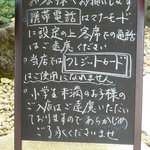 お客様へお願い致します
携帯電話はマナーモード
に設定の上客席での電話
はご遠慮ください
○当店では クレジットカード
はご使用になれません
○小学生未満のお子様の
ご入店はご遠慮いただいて
おりますのであらかじめ
ご了承くださいませ